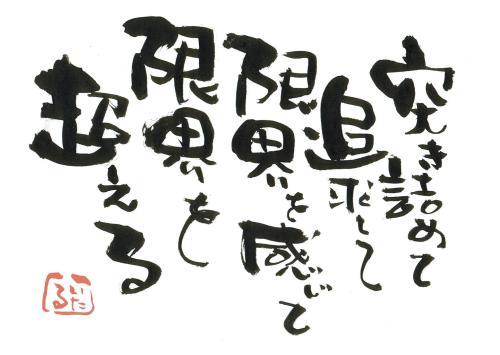 突き詰めて
追求して
限界を感じて
限界を
超える